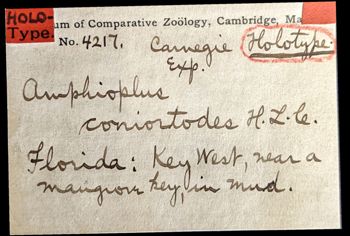 HOLO-
Type.
um of Comparative Zoölogy, Cambridge, Ma
No. 4217. Carnegie Holotype.
Exp.
Amphioplus
coniortodes H.L.C.
Florida: Key West, near a
mangrove key, in mud.